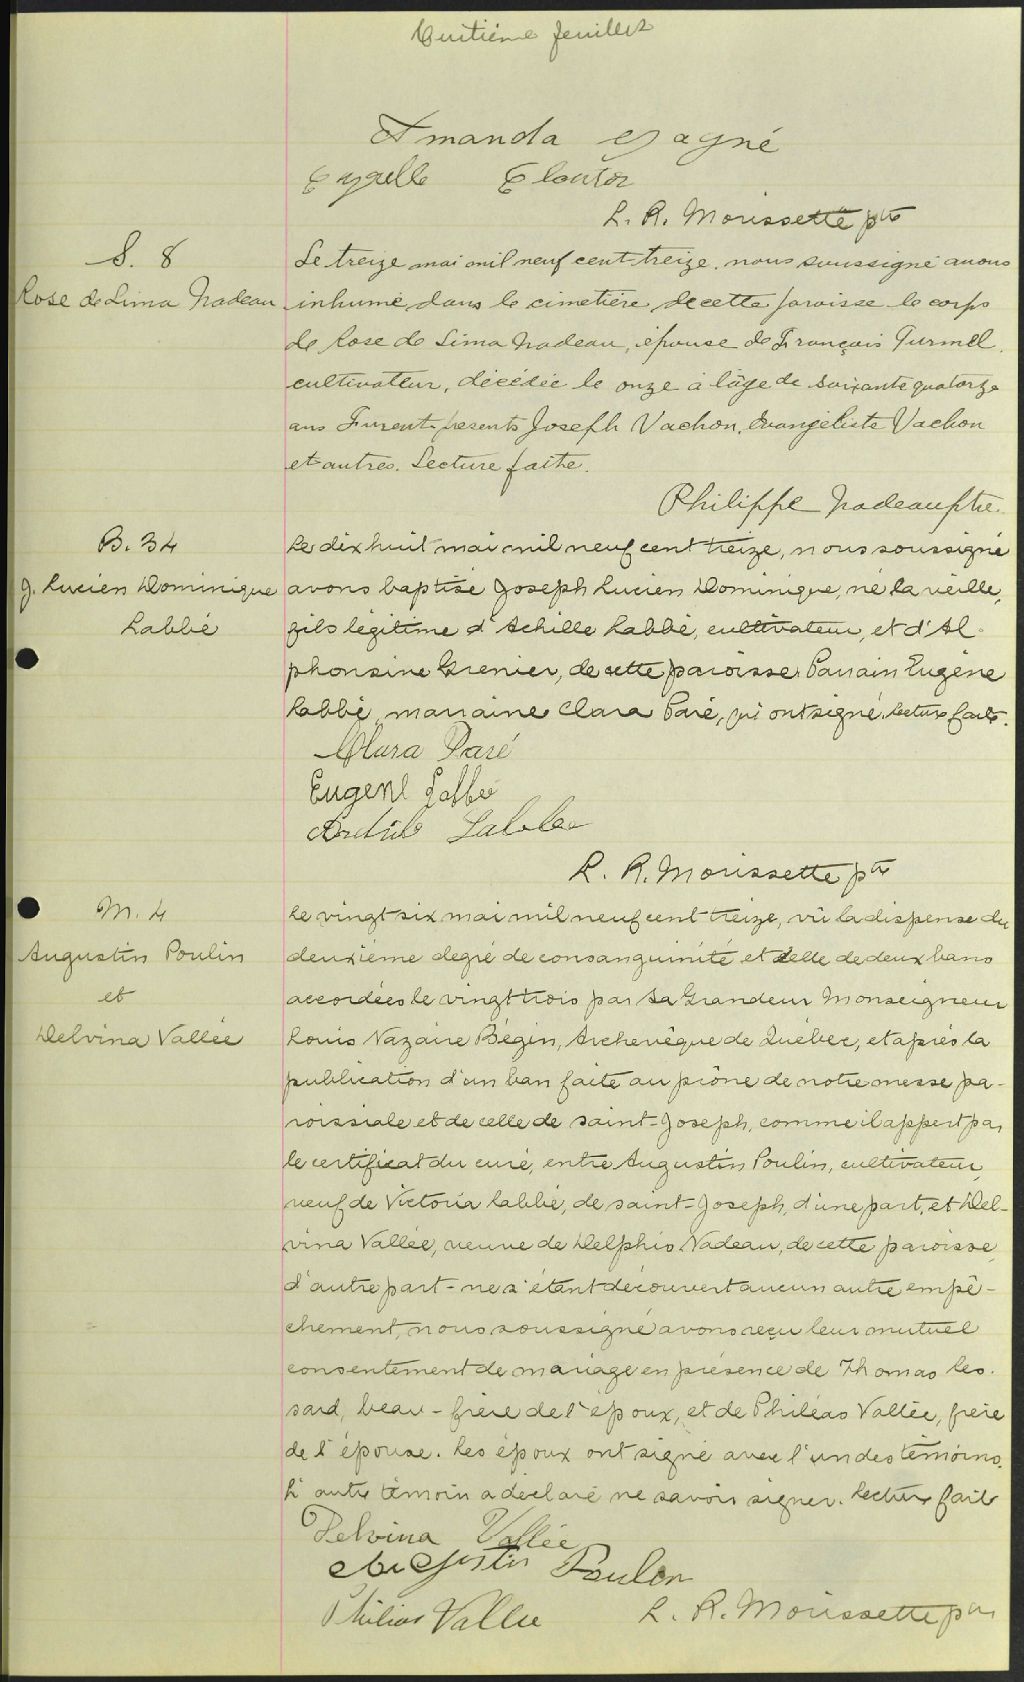 Huitième feuillet
Amanda Gagné
Cyrille Cloutier
L. R. Morissette ptre
S. 8
Rose de Lima Nadeau
Le treize mai mil neuf cent treize, nous soussigné avons
inhumé dans le cimetière de cette paroisse le corps
de Rose de Lima Nadeau, épouse de François Turmel,
cultivateur, décédée le onze à l'âge de soixante quatorze
ans Furent présents Joseph Vachon, Evangéliste Vachon
et autres. Lecture faite.
Philippe Nadeau ptre.
B. 34
J. Lucien Dominique
Labbé
Le dix huit mai mil neuf cent treize, nous soussigné
avons baptisé Joseph Lucien Dominique, né la veille,
fils légitime d'Achille Labbé, cultivateur, et d'Al-
phonsine Grenier, de cette paroisse. Parrain Eugène
Labbé, marraine Clara Paré, qui ont signé. Lecture faite.
Clara Paré
Eugene Labbé
Labbe
L. R. Morissette ptre
M. 4
Augustin Poulin
et
Delvina Vallée
Le vingt six mai mil neuf cent treize, vû la dispense du
deuxième degré de consanguinité et celle de deux bans
accordées le vingt trois par Sa Grandeur Monseigneur
Louis Nazaire Bégin, Archevêque de Québec, et après la
publication d'un ban faite au prône de notre messe pa-
roissiale et de celle de saint-Joseph, comme il appert par
le certificat du curé, entre Augustin Poulin, cultivateur,
veuf de Victoria Labbé, de saint-Joseph, d'une part, et Del-
vina Vallée, veuve de Delphis Nadeau, de cette paroisse,
d'autre part - ne s'étant découvert aucun autre empê-
chement, nous soussigné avons reçu leur mutuel
consentement de mariage en présence de Thomas Les-
sard, beau-frère de l'époux, et de Philéas Vallée, frère
de l'épouse. Les époux ont signé avec l'un des témoins.
L'autre témoin a déclaré ne savoir signer. Lecture faite
Delvina Vallée
Augustin Poulin
Philias Vallee
L. R. Morissette ptre